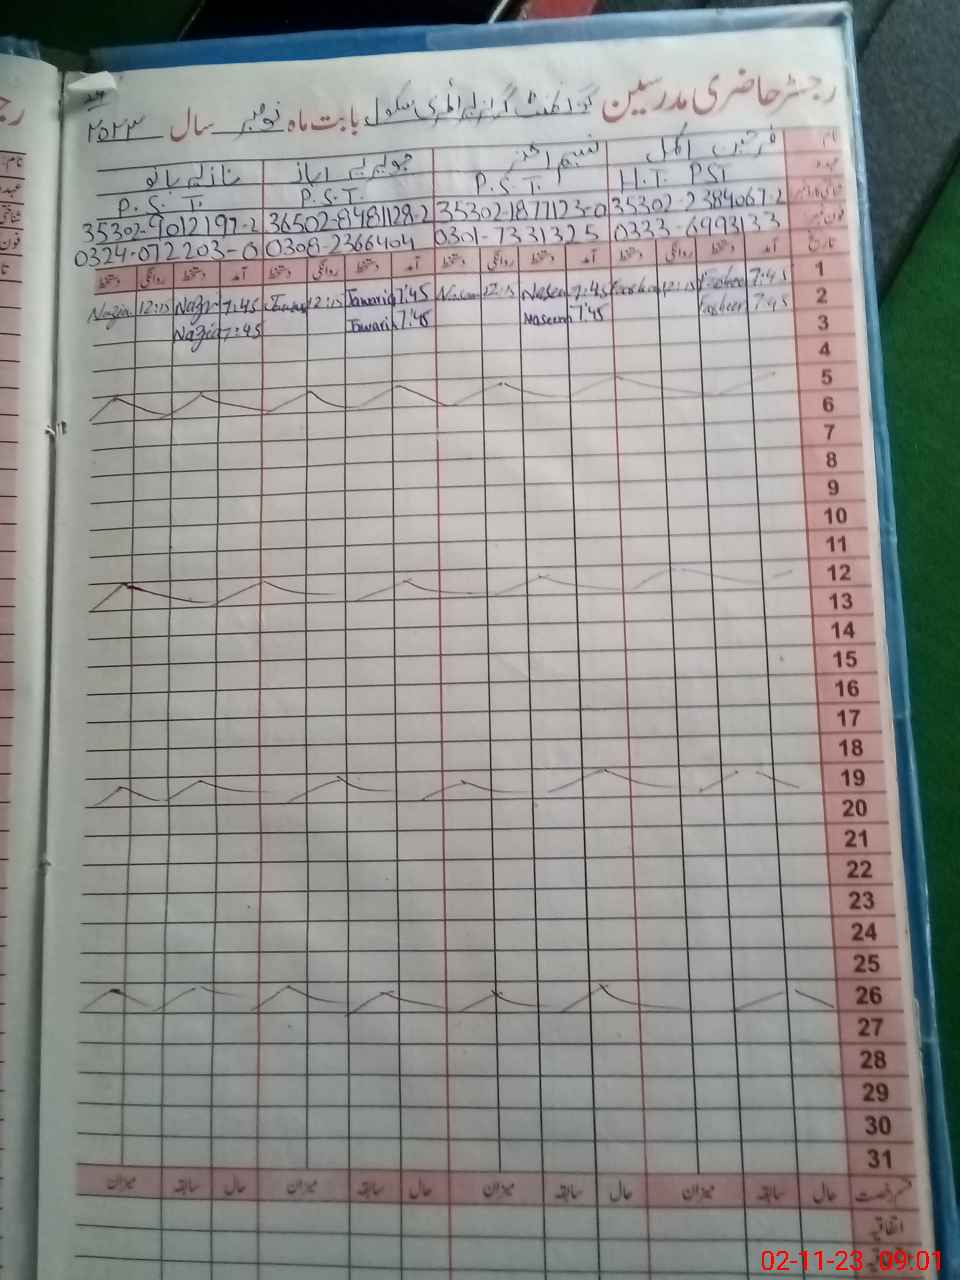 رجسٹر حاضری مدرسین گورنمنٹ گرلز پرائمری سکول بابت ماہ نومبر سال ۲۰۲۳
نام
عہدہ P.S.T. P.S.T. P.S.T. H.T. PST
35302-9012197-2 36502-8481128-2 35302-1877123-0 35302-2384067-2
فون نمبر 0324-072203-0 0308-2366404 0301-7331325 0333-6993133
تاریخ آمد دستخط روانگی آمد دستخط روانگی آمد دستخط روانگی آمد دستخط روانگی
1 Nazia 12:15 7:45 12:15 Jawaria 7:45 12:15 7:45 12:15 7:45
2 Nazia 7:45 7:45 Naseem 7:45 7:45
3
4
5
6
7
8
9
10
11
12
13
14
15
16
17
18
19
20
21
22
23
24
25
26
27
28
29
30
31
قسم رخصت حال سابقہ میزان حال سابقہ میزان حال سابقہ میزان حال سابقہ میزان
اتفاقیہ
02-11-23 09:01